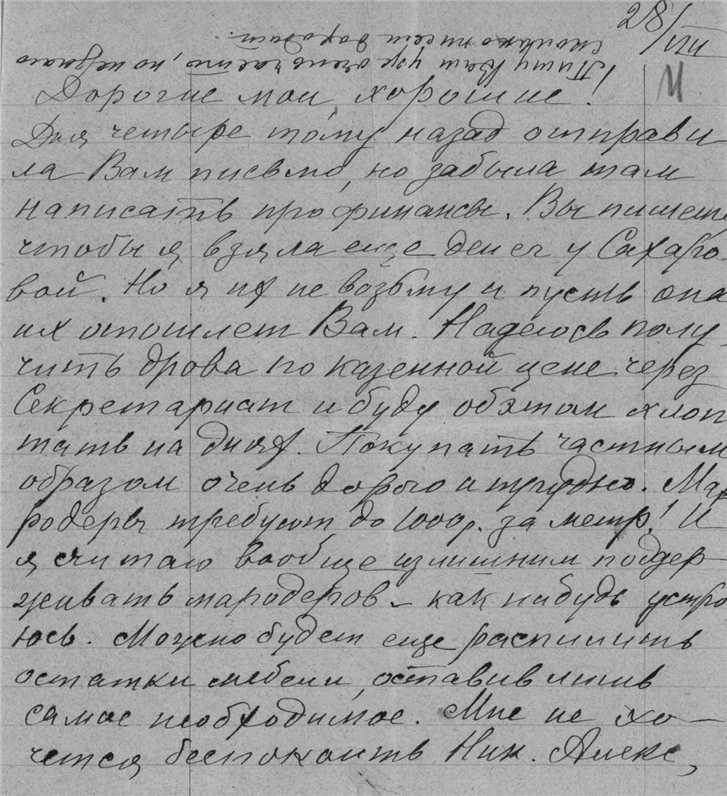 28/VIII
Пишу Вам уже очень часто, но не знаю
сколько писем доходит.
Дорогие мои, хорошие!
Дня четыре тому назад отправи
ла Вам письмо, но забыла там
написать про финансы. Вы пишете
чтобы я взяла еще денег у Сахаро
вой. Но я их не возьму и пусть она
их отошлет Вам. Надеюсь полу
чить дрова по казенной цене через
Секретариат и буду об этом хлопо
тать на днях. Покупать частным
образом очень дорого и трудно. Ма
родеры требуют до 1000р. за метр! И
я считаю вообще излишним поддер
живать мародеров – как нибудь устро
юсь. Можно будет еще распилить
остатки мебели, оставив лишь
самое необходимое. Мне не хо–
чется беспокоить Ник. Алекс,